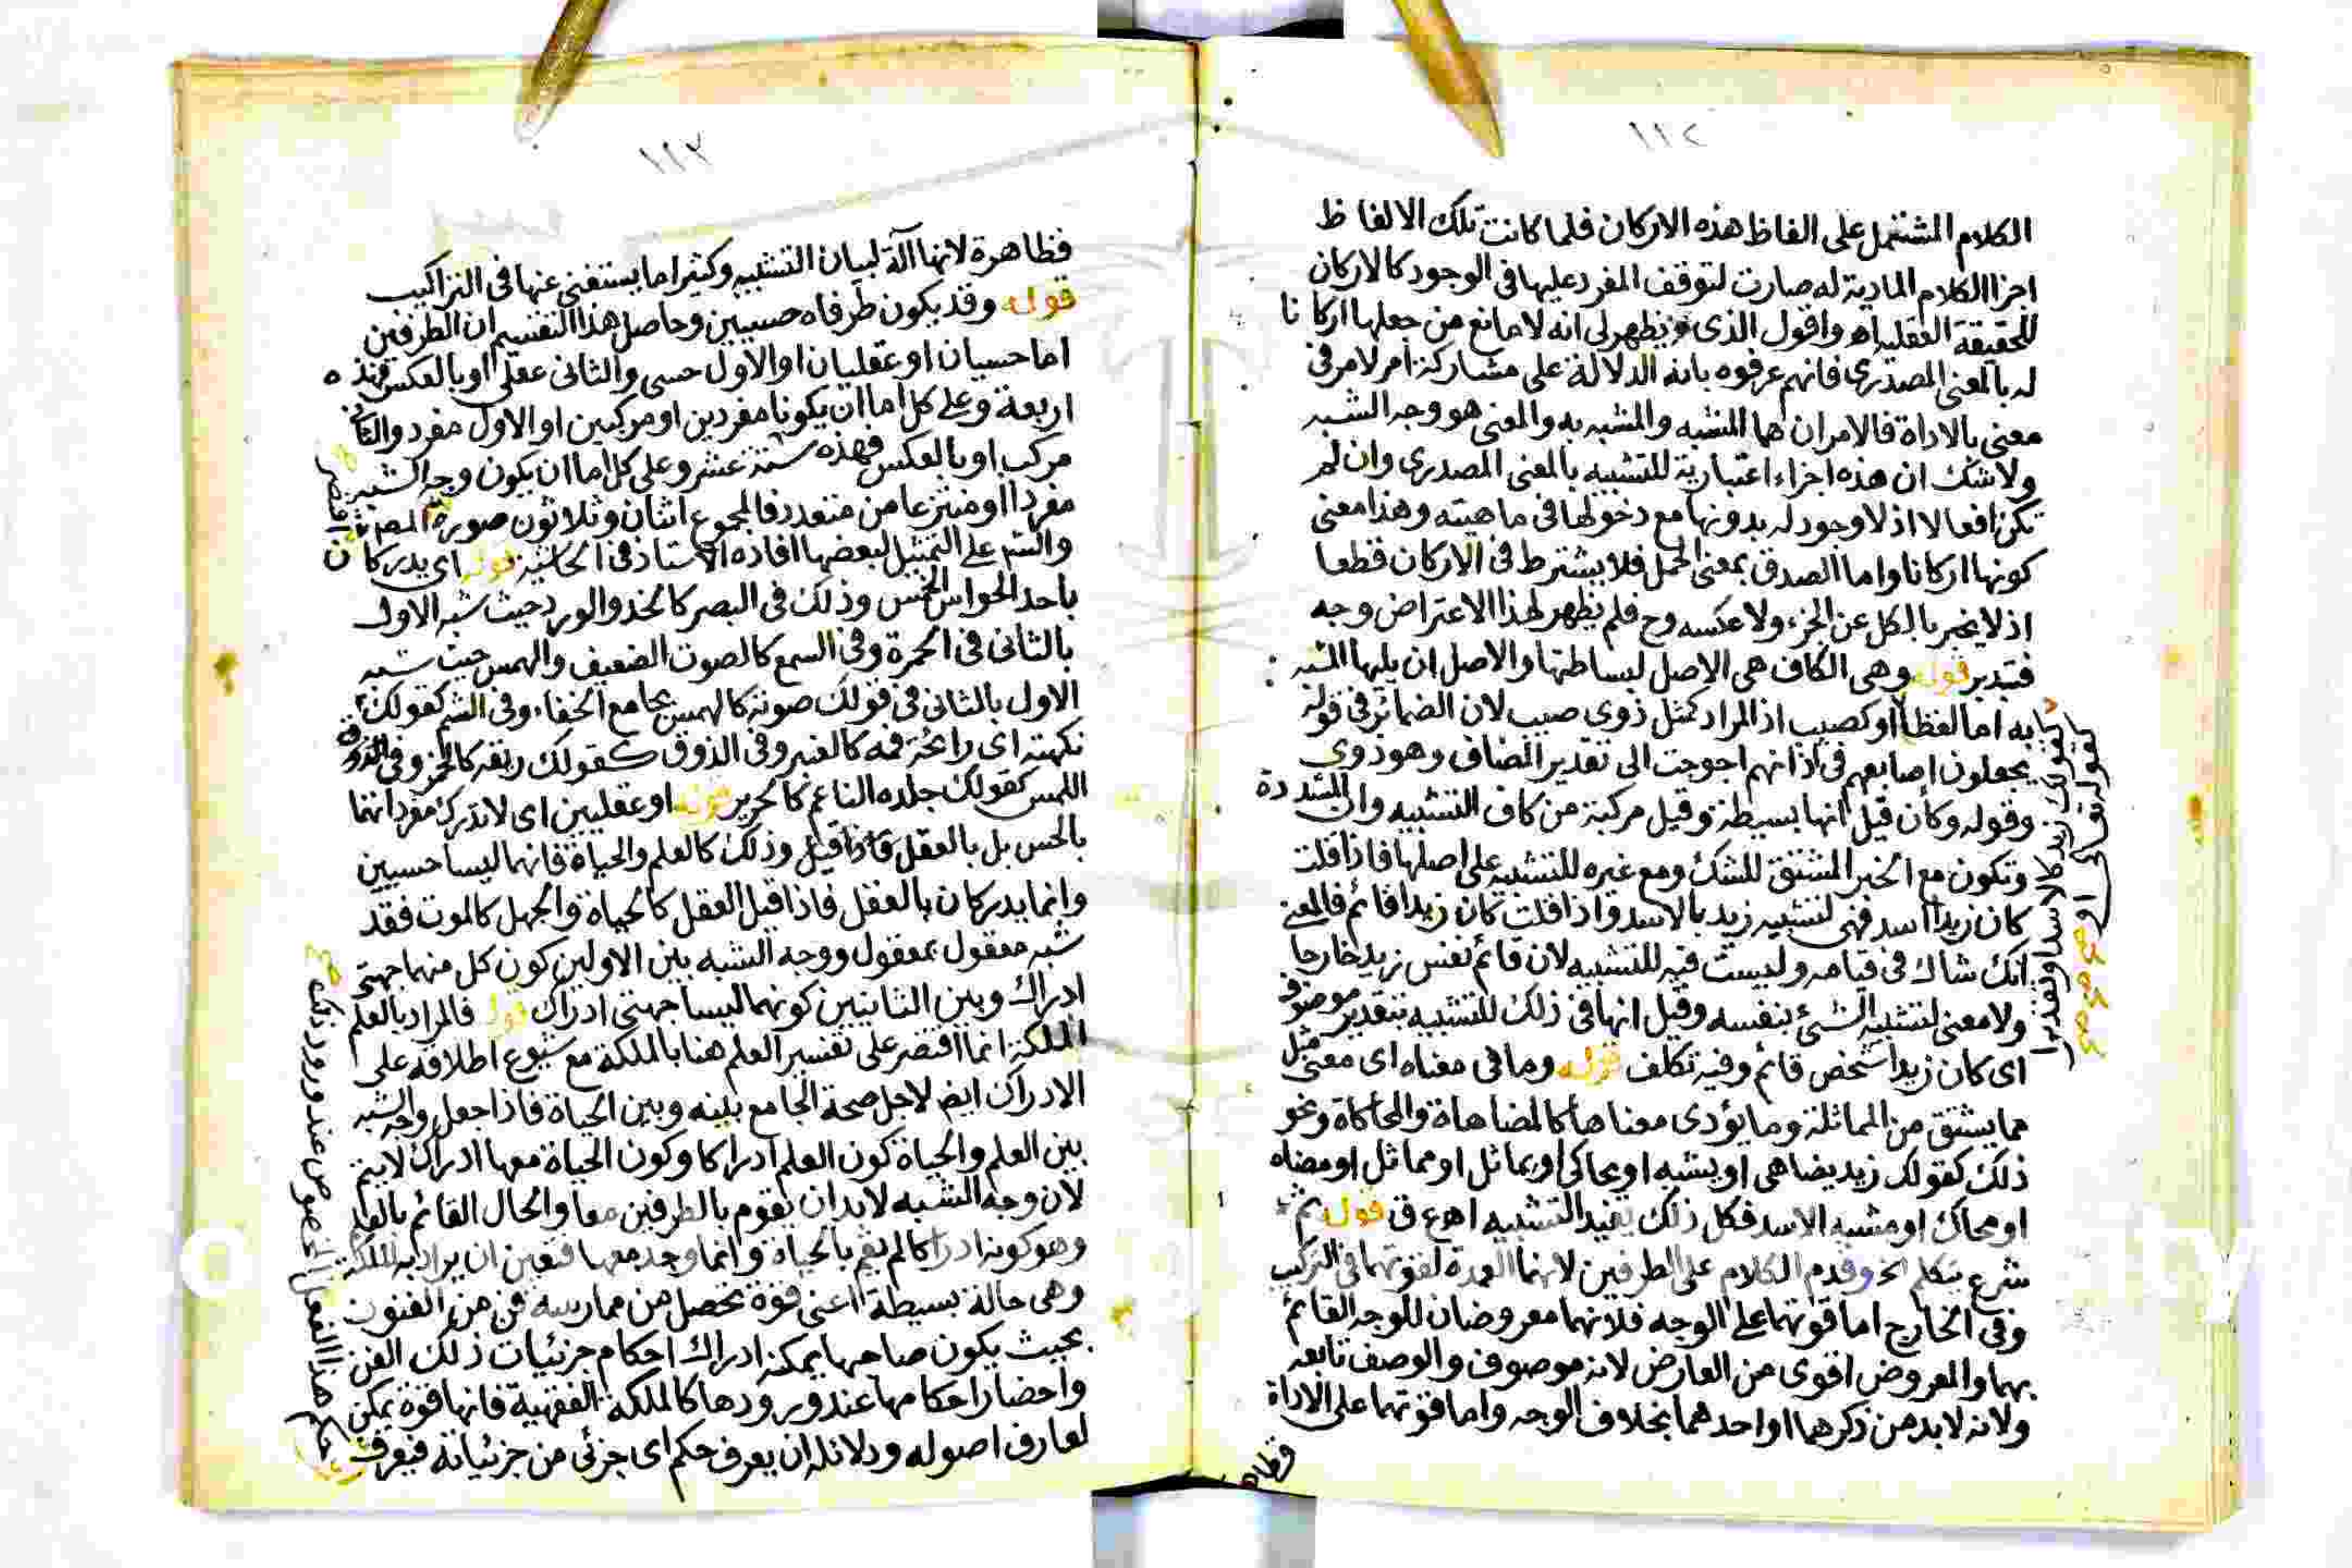 ١١٢
الكلام المشتمل على الفاظ هذه الاركان فلما كانت تلك الالفاظ
اجزا الكلام المادية له صارت لتوقف المفرد عليها في الوجود كالاركان
للحقيقة العقلية اه واقول الذى يظهر لى انه لا مانع من جعلها اركانا
له بالمعنى المصدرى فانهم عرفوه بانه الدلالة على مشاركة امر لامر فى
معنى بالاداة فالامران هما المشبه والمشبه به والمعنى هو وجه الشبه
ولا شك ان هذه اجزاء اعتبارية للتشبيه بالمعنى المصدرى وان لم
تكن افعالا اذ لا وجود له بدونها مع دخولها فى ماهيته وهذا معنى
كونها اركانا واما الصدق بمعنى الحمل فلا يشترط فى الاركان قطعا
اذ لا يخبر بالكل عن الجزء ولا عكسه وح فلم يظهر لهذا الاعتراض وجه
فتدبر قوله وهى الكاف هى الاصل لبساطتها والاصل ان يليها المشبه
به اما لفظا او كصيب اذ المراد كمثل ذوى صيب لان الضمائر فى قوله
يجعلون اصابعهم فى اذانهم احوجت الى تقدير المضاف وهو ذوى
وقوله وكأن قيل انها بسيطة وقيل مركبة من كاف التشبيه وان المشددة
وتكون مع الخبر المشتق للشك ومع غيره للتشبيه على اصلها فاذا قلت
كان زيدا اسد فهى لتشبيه زيد بالاسد واذا قلت كان زيدا قائم فالمعنى
انك شاك فى قيامه وليست فيه للتشبيه لان قائم نفس زيد خارجا
ولا معنى لتشبيه الشئ بنفسه وقيل انها فى ذلك للتشبيه بتقدير موصوف
اى كان زيدا شخص قائم وفيه تكلف قوله وما فى معناه اى معنى مثل
مما يشتق من المماثلة وما يؤدى معناها كالمضاهاة والمحاكاة ونحو
ذلك كقولك زيد يضاهى او يشبه او يحاكى او يماثل او مماثل او مضاه
او محاك او مشبه الاسد فكل ذلك يفيد التشبيه اهع ق قوله ثم
شرع يتكلم الخ وقدم الكلام على الطرفين لانهما العمدة لقوتهما فى التركيب
وفى الخارج اما قوتهما على الوجه فلانهما معروضان للوجه القائم
بهما والمعروض اقوى من العارض لانه موصوف والوصف تابعه
ولانه لا بد من ذكرهما او احدهما بخلاف الوجه واما قوتهما على الاداة
فظاه
كقولك زيد كالاسد او تقديرا
كقوله تعالى او
١١٣
فظاهرة لانها آلة لبيان التشبيه وكثيرا ما يستغنى عنها فى التراكيب
قوله وقد يكون طرفاه حسيين وحاصل هذا التقسيم ان الطرفين
اما حسيان او عقليان او الاول حسى والثانى عقلى او بالعكس فهذه
اربعة وعلى كل اما ان يكونا مفردين او مركبين او الاول مفرد والثانى
مركب او بالعكس فهذه ستة عشر وعلى كل اما ان يكون وجه الشبه
مفردا او منتزعا من متعدد فالمجموع اثنان وثلاثون صورة المصنف
والشم على التمثيل لبعضها افاده الاستاذ فى الحاشية قوله اى يدركان
باحد الحواس الخمس وذلك فى البصر كالخد والورد حيث شبه الاول
بالثانى فى الحمرة وفى السمع كالصوت الضعيف والهمس حيث شبه
الاول بالثانى فى قولك صوته كالهمس بجامع الخفاء وفى الشم كقولك
نكهته اى رائحة فمه كالعنبر وفى الذوق كقولك ريقه كالخمر وفى
اللمس كقولك جلده الناعم كالحرير قوله او عقليين اى لا تدرك مفرداتهما
بالحس بل بالعقل وذلك كالعلم والحياة فانهما ليسا حسيين
وانما يدركان بالعقل فاذا قيل العقل كالحياة والجهل كالموت فقد
شبه معقول بمعقول ووجه الشبه بين الاولين كون كل منهما جهتى
ادراك وبين الثانيين كونهما ليسا جهتى ادراك قوله فالمراد بالعلم
الملكة انما اقتصر على تفسير العلم هنا بالملكة مع شيوع اطلاقه على
الادراك ايضا لاجل صحة الجامع بينه وبين الحياة فاذا جعل وجه الشبه
بين العلم والحياة كون العلم ادراكا وكون الحياة معها ادراك لا يتم
لان وجه الشبه لابد ان يقوم بالطرفين معا والحال القائم بالعلم
وهو كونه ادراكا لم يقم بالحياة وانما وجد معها فتعين ان يراد به الملكة
وهى حالة بسيطة اعنى قوة تحصل من ممارسة فن من الفنون
بحيث يكون صاحبها يمكنه ادراك احكام جزئيات ذلك الفن
واحضار احكامها عند ورودها كالملكة الفقهية فانها قوة يمكن
لعارف اصوله ودلائله ان يعرف حكم اى جزئى من جزئياته فيعرف
حكم هذا الفعل الخصوص عند ورود ذلك